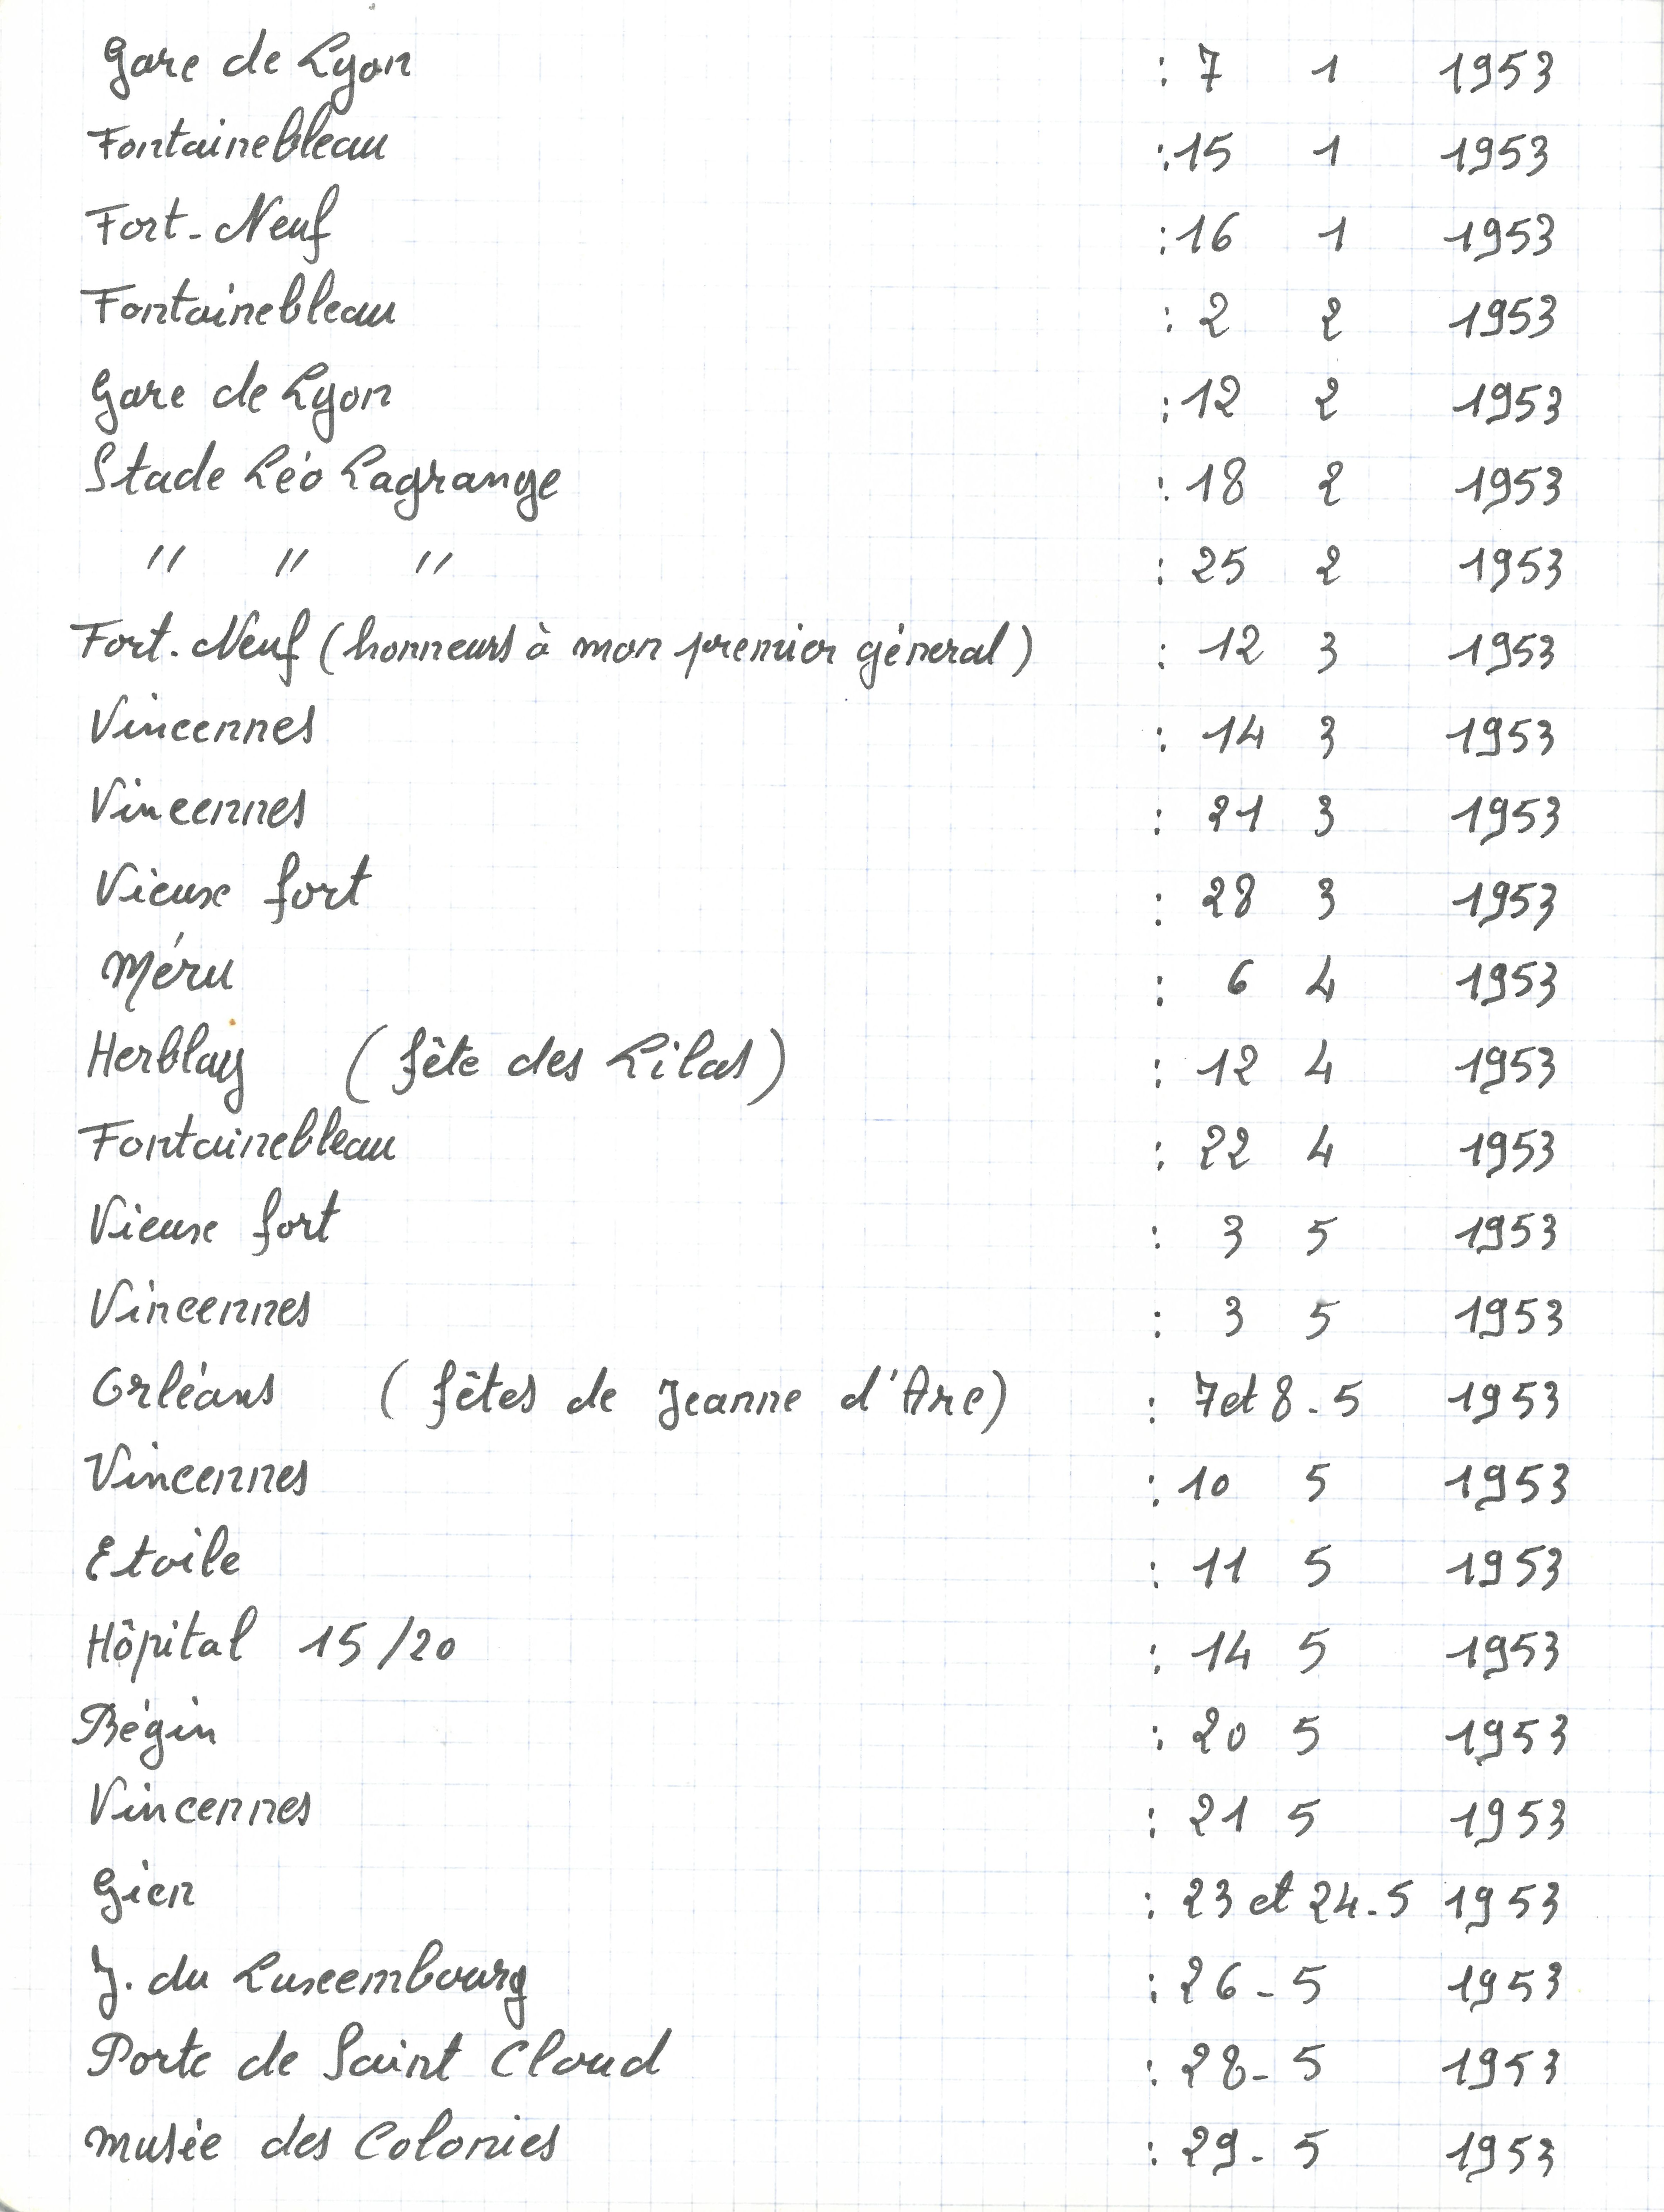 Gare de Lyon : 7 1 1953
Fontainebleau : 15 1 1953
Fort-Neuf : 16 1 1953
Fontainebleau : 2 2 1953
Gare de Lyon : 12 2 1953
Stade Léo Lagrange : 18 2 1953
" " " : 25 2 1953
Fort-Neuf (honneurs à mon premier géneral) : 12 3 1953
Vincennes : 14 3 1953
Vincennes : 21 3 1953
Vieux fort : 28 3 1953
Méru : 6 4 1953
Herblay (fête des Lilas) : 12 4 1953
Fontainebleau : 22 4 1953
Vieux fort : 3 5 1953
Vincennes : 3 5 1953
Orléans (fêtes de Jeanne d'Arc) : 7 et 8-5 1953
Vincennes : 10 5 1953
Etoile : 11 5 1953
Hôpital 15/20 : 14 5 1953
Bégin : 20 5 1953
Vincennes : 21 5 1953
Gien : 23 et 24-5 1953
J. du Luxembourg : 26-5 1953
Porte de Saint Cloud : 28-5 1953
musée des Colonies : 29-5 1953